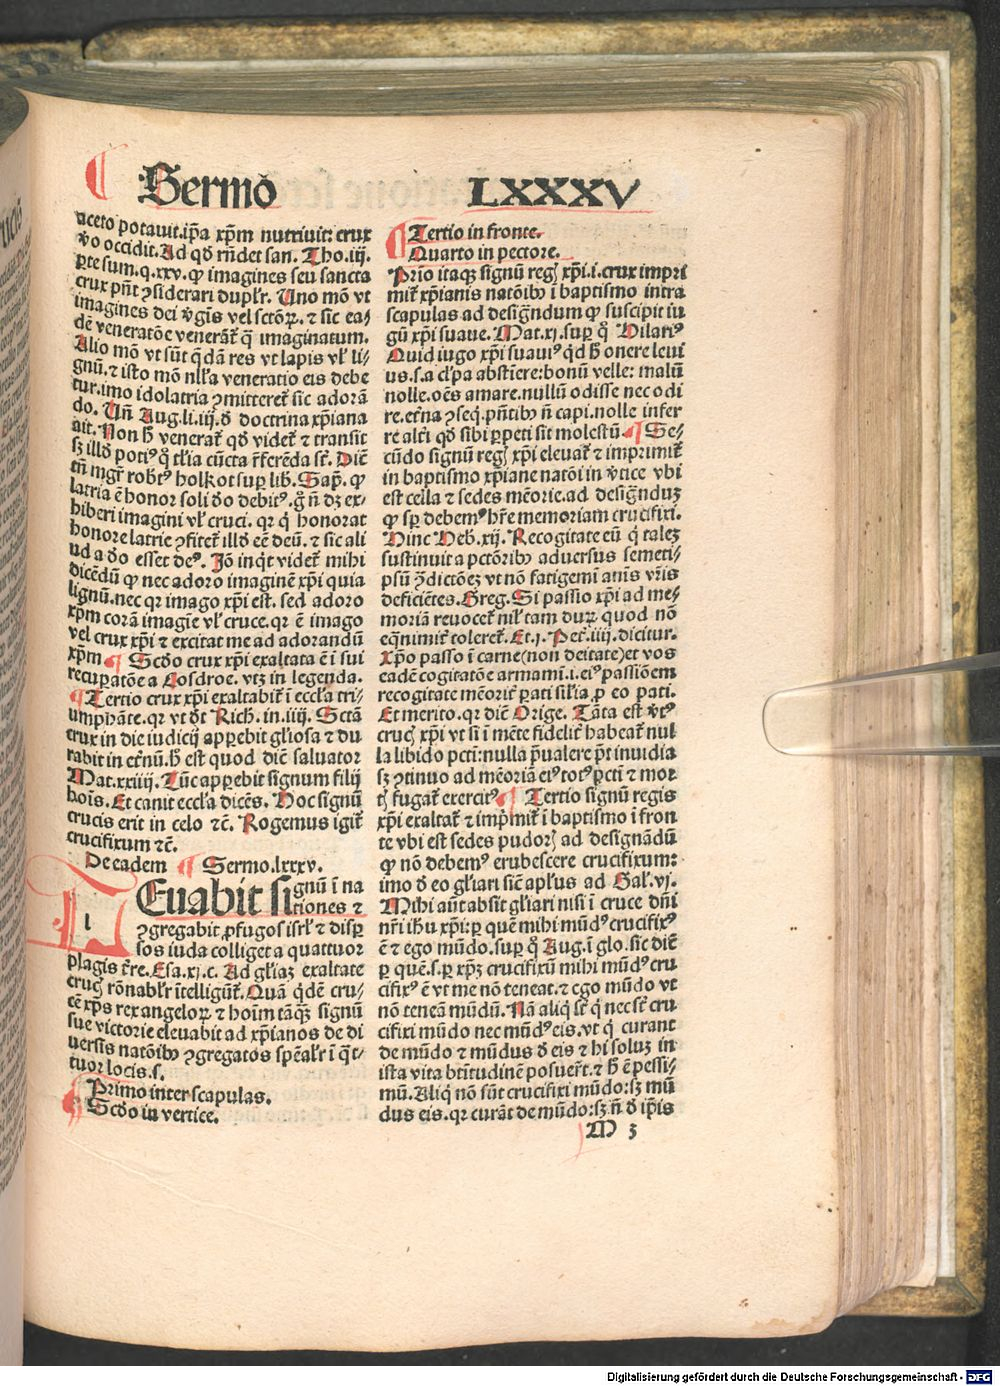 Sermō LXXXV
aceto potauit. ip̄a xp̄m nutriuit: crux
ꝟo occidit. Ad qd̄ rn̄det san. Tho. iij.
ꝑte sum. q. xxv. ꝙ imagines seu sancta
crux pn̄t ꝯsiderari duplr̄. Uno mō vt
imagines dei ꝟgis vel sctōꝝ. ⁊ sic ea⸗
dē veneratōe venerat̄ q̄ imaginatum.
Alio mō vt sūt q̄dā res vt lapis vl̓ li⸗
gnū. ⁊ isto mō nll̓a veneratio eis debe
tur. imo idolatria ꝯmitteret̄ sic adorā
do. Un̄ Aug. li. iij. ð doctrina xp̄iana
ait. Non h̄ venerat̄ qd̄ videt̄ ⁊ transit
sꝫ illd̄ potiꝰ q̊ tl̓ia cūcta rr̄ferēda st̄. Diē
tn̄ mgr̄ robt̓ꝰ holkot suꝑ lib. Sap. ꝙ
latria ē honor soli ðo debitꝰ. g̊ n̄ dꝫ ex⸗
hiberi imagini vl̓ cruci. qr q̇ honorat
honore latrie ꝯfitet̄ illd̄ eē deū. ⁊ sic ali
ud a ðo esset deꝰ. Jō inq̇t videt̄ mihi
dicēdū ꝙ nec adoro imaginē xp̄i quia
lignū. nec qr imago xp̄i est. sed adoro
xp̄m corā imagīe vl̓ cruce. qr ē imago
vel crux xp̄i ⁊ excitat me ad adorandū
xp̄m ¶ Scd̄o crux xp̄i exaltata ē ī sui
recuꝑatōe a Cosdroe. vtꝫ in legenda.
¶ Tertio crux xp̄i exaltabit̄ ī eccl̓a tri⸗
umphāte. qr vt ðt Rich. in. iiij. Sctā
crux in die iudicij apparebit gl̓iosa ⁊ du
rabit in etn̄ū. h̄ est quod diē saluator
Mat. xxiiij. Tūc apparebit signum filij
hoīs. Et canit eccl̓a dicēs. Hoc signū
crucis erit in celo ⁊c̄. Rogemus igit̄
crucifixum ⁊c̄.
De eadem ¶ Sermo. lxxxv.
lEuabit signū ī na
tiones ⁊
ꝯgregabit ꝓfugos isrl̓ ⁊ disꝑ
sos iuda colliget a quattuor
plagis tr̄e. Esa. xj. c. Ad gl̓iaꝫ exaltate
crucꝭ rōnablr̄ ītelligūt̄. Quā q̇dē cru⸗
cē xp̄s rex angeloꝝ ⁊ hoīm tāq̄ꝫ signū
sue victorie eleuabit ad xp̄ianos de di
uersis natōibꝰ ꝯgregatos spēalr̄ ī q̄t⸗
tuor locis. s.
¶ Primo inter scapulas.
Scd̄o in vertice.
¶ Tertio in fronte.
Quarto in pectore.
Prīo itaqꝫ signū regꝭ xp̄i. i. crux impri
mit̄ xp̄ianis natōibꝰ ī baptismo intra
scapulas ad desiḡndum ꝙ suscipit iu
gū xp̄i suaue. Mat. xj. suꝑ q̊ Hilariꝰ
Quid iugo xp̄i suauiꝰ q̇d h̄ onere leui
us. s. a cl̓pa abstīere: bonū velle: malū
nolle. oēs amare. nullū odisse nec odi
re. etn̄a ꝯseq̇. pn̄tibꝰ n̄ capi. nolle infer
re alt̓i qd̄ sibi ꝑpeti sit molestū ¶ Se⸗
cūdo signū regꝭ xp̄i eleuat̄ ⁊ imprimit̄
in baptismo xp̄iane natōi in ꝟtice vbi
est cella ⁊ sedes mēorie. ad desiḡnduꝫ
ꝙ sꝑ debemꝰ hr̄e memoriam crucifixi.
Hinc Heb. xij. Recogitate eū q̇ taleꝫ
sustinuit a pctōribꝰ aduersus semeti⸗
psū ꝯ̄dictōeꝫ vt nō fatigemī anīs vr̄is
deficiētes. Greg. Si passio xp̄i ad me⸗
moriā reuocet̄ nil̓ tam duꝝ quod nō
eq̄nimit̄ toleret̄. Et. j. Pet̓. iiij. dicitur.
Xp̄o passo ī carne (non deitate) et vos
eadē cogitatōe armamī. i. eiꝰ passiōem
recogitate mēorit̄ ꝑati sil̓ia ꝓ eo pati.
Et merito. qr diē Orige. Tāta est ꝟtꝰ
crucꝭ xp̄i vt si ī mēte fidelit̄ habeat̄ nul
la libido pcti: nulla p̄ualere pr̄t inuidia
sꝫ ꝯtinuo ad mēoriā eiꝰ totꝰ pcti ⁊ mor
tꝭ fugat̄ exercitꝰ ¶ Tertio signū regis
xp̄i exaltat̄ ⁊ imp̄mit̄ ī baptismo ī fron
te vbi est sedes pudorꝭ ad designādū
ꝙ nō debemꝰ erubescere crucifixum:
imo ð eo gl̓iari sic̄ apl̓us ad Gal̓. vj.
Mihi aūt absit gl̓iari nisi ī cruce dn̄i
nr̄i ihū xp̄i: ꝑ quē mihi mūdꝰ crucifixꝰ
ē ⁊ ego mūdo. suꝑ q̊ Aug. ī glo. sic diē
ꝑ quē. s. ꝑ xp̄ꝫ crucifixū mihi mūdꝰ cru
cifixꝰ ē vt me nō teneat. ⁊ ego mūdo vt
nō teneā mūdū. Nā aliq̇ st̄ q̇ nec st̄ cru
cifixi mūdo nec mūdꝰ eis. vt q̇ curant
de mūdo ⁊ mūdus ð eis ⁊ hi soluꝫ in
ista vita btītudinē posuer̄t. ⁊ h̄ ē pessi⸗
mū. Aliq̇ nō sūt crucifixi mūdo: sꝫ mū
dus eis. qr curāt de mūdo: sꝫ n̄ ð ip̄is
M 3
Digitalisierung gefördert durch die Deutsche Forschungsgemeinschaft - DFG